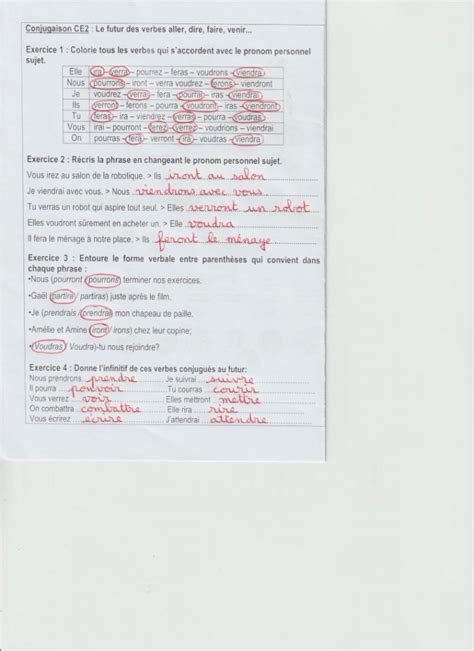 Conjugaison CE2 : Le futur des verbes aller, dire, faire, venir...
Exercice 1 : Colorie tous les verbes qui s'accordent avec le pronom personnel
sujet.
Elle ira – verra – pourrez – feras – voudrons – viendra
Nous pourrons – iront – verra voudrez – ferons – viendront
Je voudrez – verrai – fera – pourrai – iras – viendrai
Ils verront – ferons – pourra – voudront – iras – viendront
Tu feras – ira – viendrez – verras – pourra – voudras
Vous irai – pourront – ferez – verrez – voudrions – viendrai
On pourras – fera – verront – ira – voudras – viendra
Exercice 2 : Récris la phrase en changeant le pronom personnel sujet.
Vous irez au salon de la robotique. > Ils iront au salon
Je viendrai avec vous. > Nous viendrons avec vous.
Tu verras un robot qui aspire tout seul. > Elles verront un robot
Elles voudront sûrement en acheter un. > Elle voudra
Il fera le ménage à notre place. > Ils feront le ménage
Exercice 3 : Entoure le forme verbale entre parenthèses qui convient dans
chaque phrase :
•Nous (pourront / pourrons) terminer nos exercices.
•Gaël (partira / partiras) juste après le film.
•Je (prendrais / prendrai) mon chapeau de paille.
•Amélie et Amine (iront / irons) chez leur copine;
•(Voudras / Voudra)-tu nous rejoindre?
Exercice 4 : Donne l'infinitif de ces verbes conjugués au futur:
Nous prendrons prendre Je suivrai suivre
Il pourra pouvoir Tu courras courir
Vous verrez voir Elles mettront mettre
On combattra combattre Elle rira rire
Vous écrirez écrire J'attendrai attendre